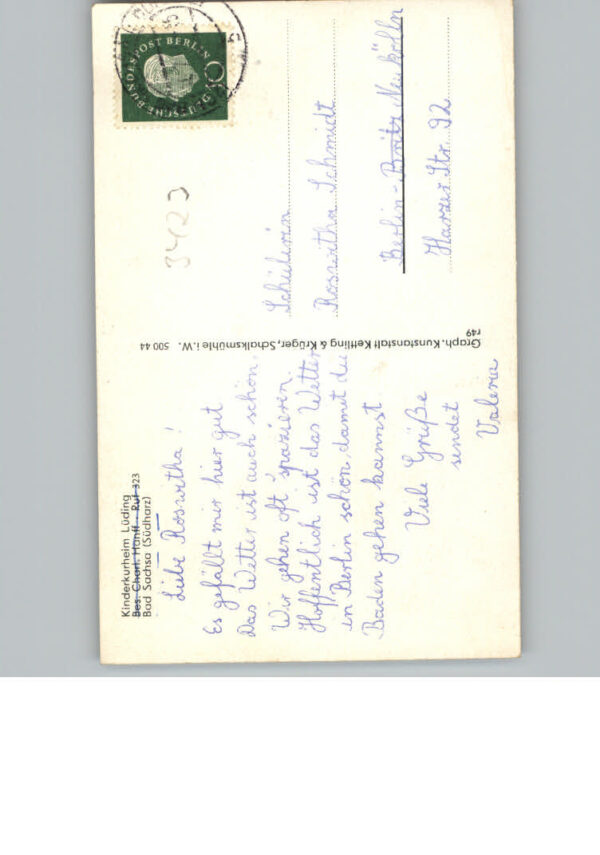 Kinderkurheim Lüding
Bes. Charl. Hanff · Ruf 323
Bad Sachsa (Südharz)
Liebe Roswitha!
Es gefällt mir hier gut
Das Wetter ist auch schön.
Wir gehen oft spazieren.
Hoffentlich ist das Wetter
in Berlin schön, damit du
Baden gehen kannst
Viele Grüße
sendet
Valeria
Graph. Kunstanstalt Kettling & Krüger, Schalksmühle i.W. 500 44
r49
DEUSCHE BUNDESPOST BERLIN
3423
Schülerin
Roswitha Schmidt
Berlin-Britz Neukölln
Harzer Str. 92